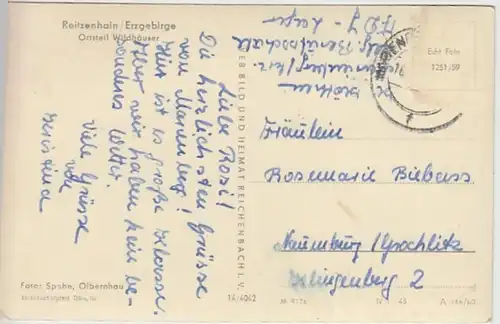 Reitzenhain/Erzgebirge
Ortsteil Wildhäuser
Liebe Rosi!
Die herzlichsten Grüsse
von Marienberg!
Hier ist es große Klasse.
Aber wir haben kein be-
sondres Wetter.
Viele Grüsse
von
Christina
VEB BILD UND HEIMAT REICHENBACH I. V.
Echt Foto
1251/59
Fräulein
Rosemarie
Naumburg/Grochlitz
Klingenberg 2
Foto: Spahn, Olbernhau
14/4042
M 9176
N 45
A 164/60